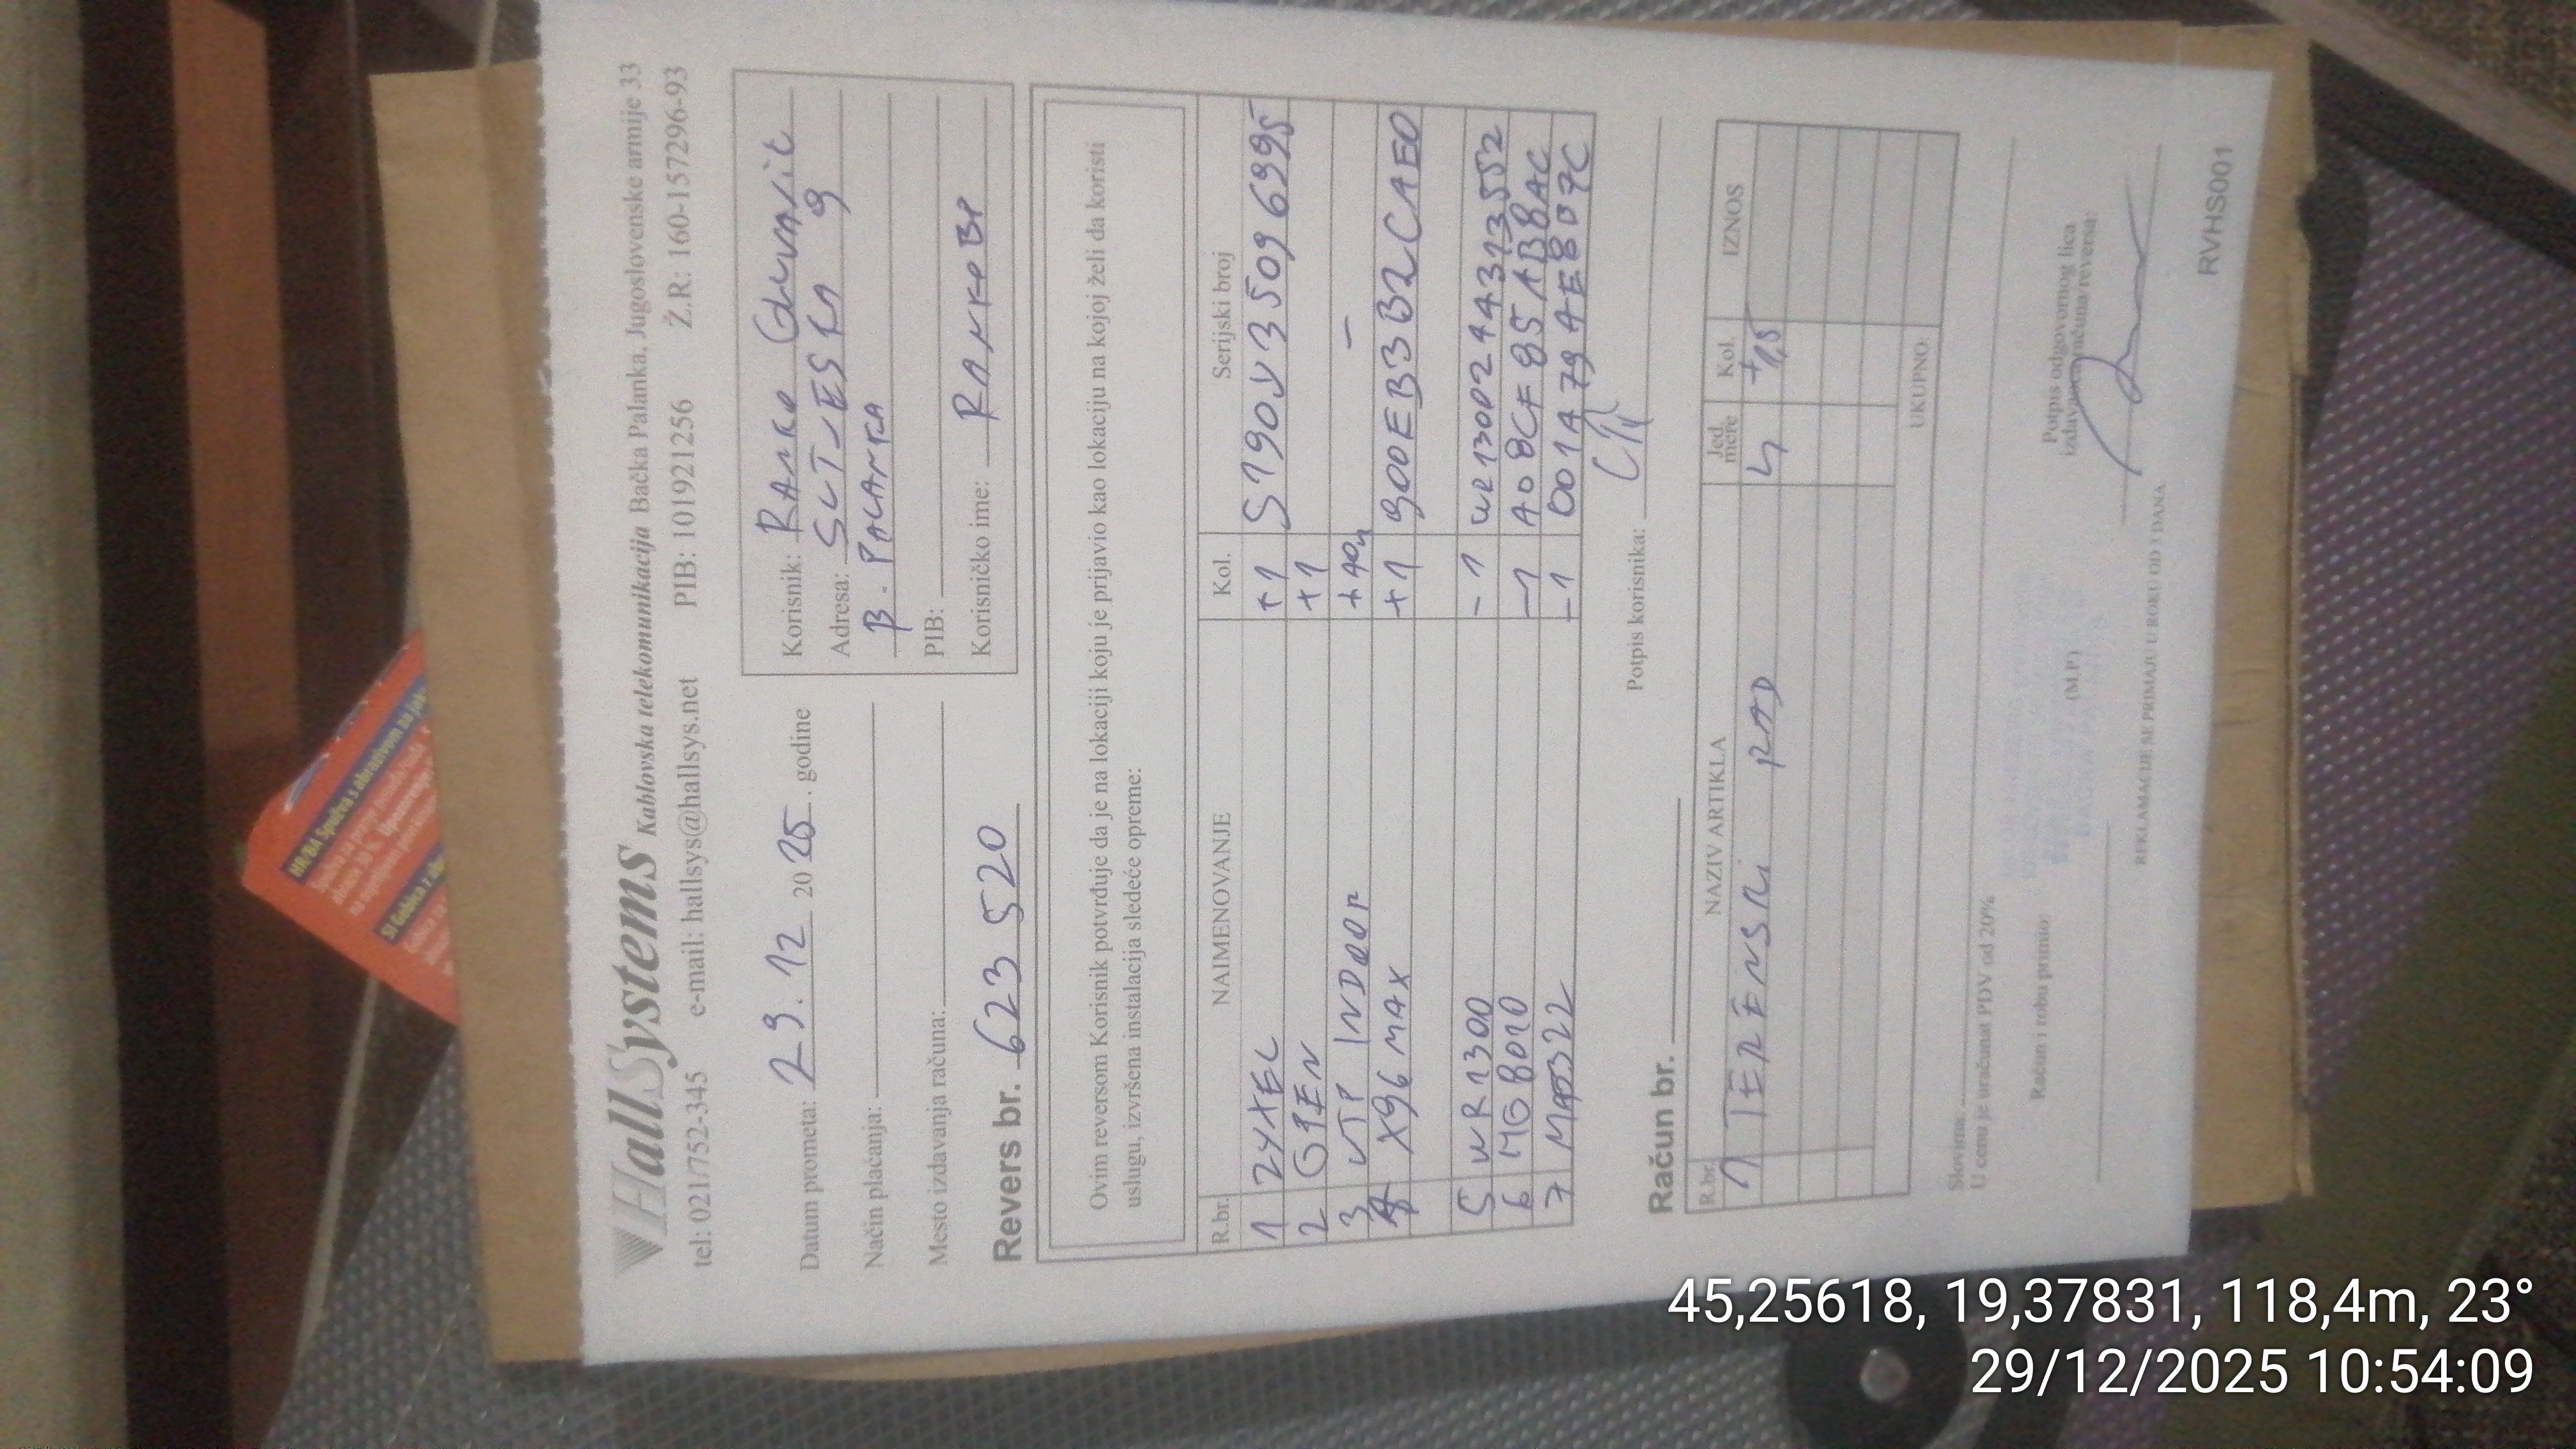 HallSystems Kablovska telekomunikacija Bačka Palanka, Jugoslovenske armije 33
tel: 021/752-345 e-mail: hallsys@hallsys.net PIB: 101921256 Ž.R: 160-1572296-93
Datum prometa: 29.12 2025. godine
Način plaćanja:
Mesto izdavanja računa:
Revers br. 623 520
Korisnik: RANKO
Adresa: SUTJESKA 9
B. PALANKA
PIB:
Korisničko ime: RANKOBP
Ovim reversom Korisnik potvrđuje da je na lokaciji koju je prijavio kao lokaciju na kojoj želi da koristi
uslugu, izvršena instalacija sledeće opreme:
R.br. NAIMENOVANJE Kol. Serijski broj
1 ZYXEL +1 S190Y35096995
2 +1
3 UTP INDOOR +40m -
4 X96 MAX +1 900EB3B2CAE0
5 WR1300 -1
6 MG8010 -1 A08CF85AB8AC
7 -1 001A79AE807C
Potpis korisnika:
Račun br.
R.br. NAZIV ARTIKLA Jed. mere Kol. IZNOS
1 TERENSKI RAD
UKUPNO:
Slovima:
U cenu je uračunat PDV od 20%
Račun i robu primio:
(M.P.)
Potpis odgovornog lica
izdavaoca računa/reversa:
REKLAMACIJE SE PRIMAJU U ROKU OD 3 DANA
RVHS001
HR/BA Spužva s abrazivom za
45,25618, 19,37831, 118,4m, 23°
29/12/2025 10:54:09